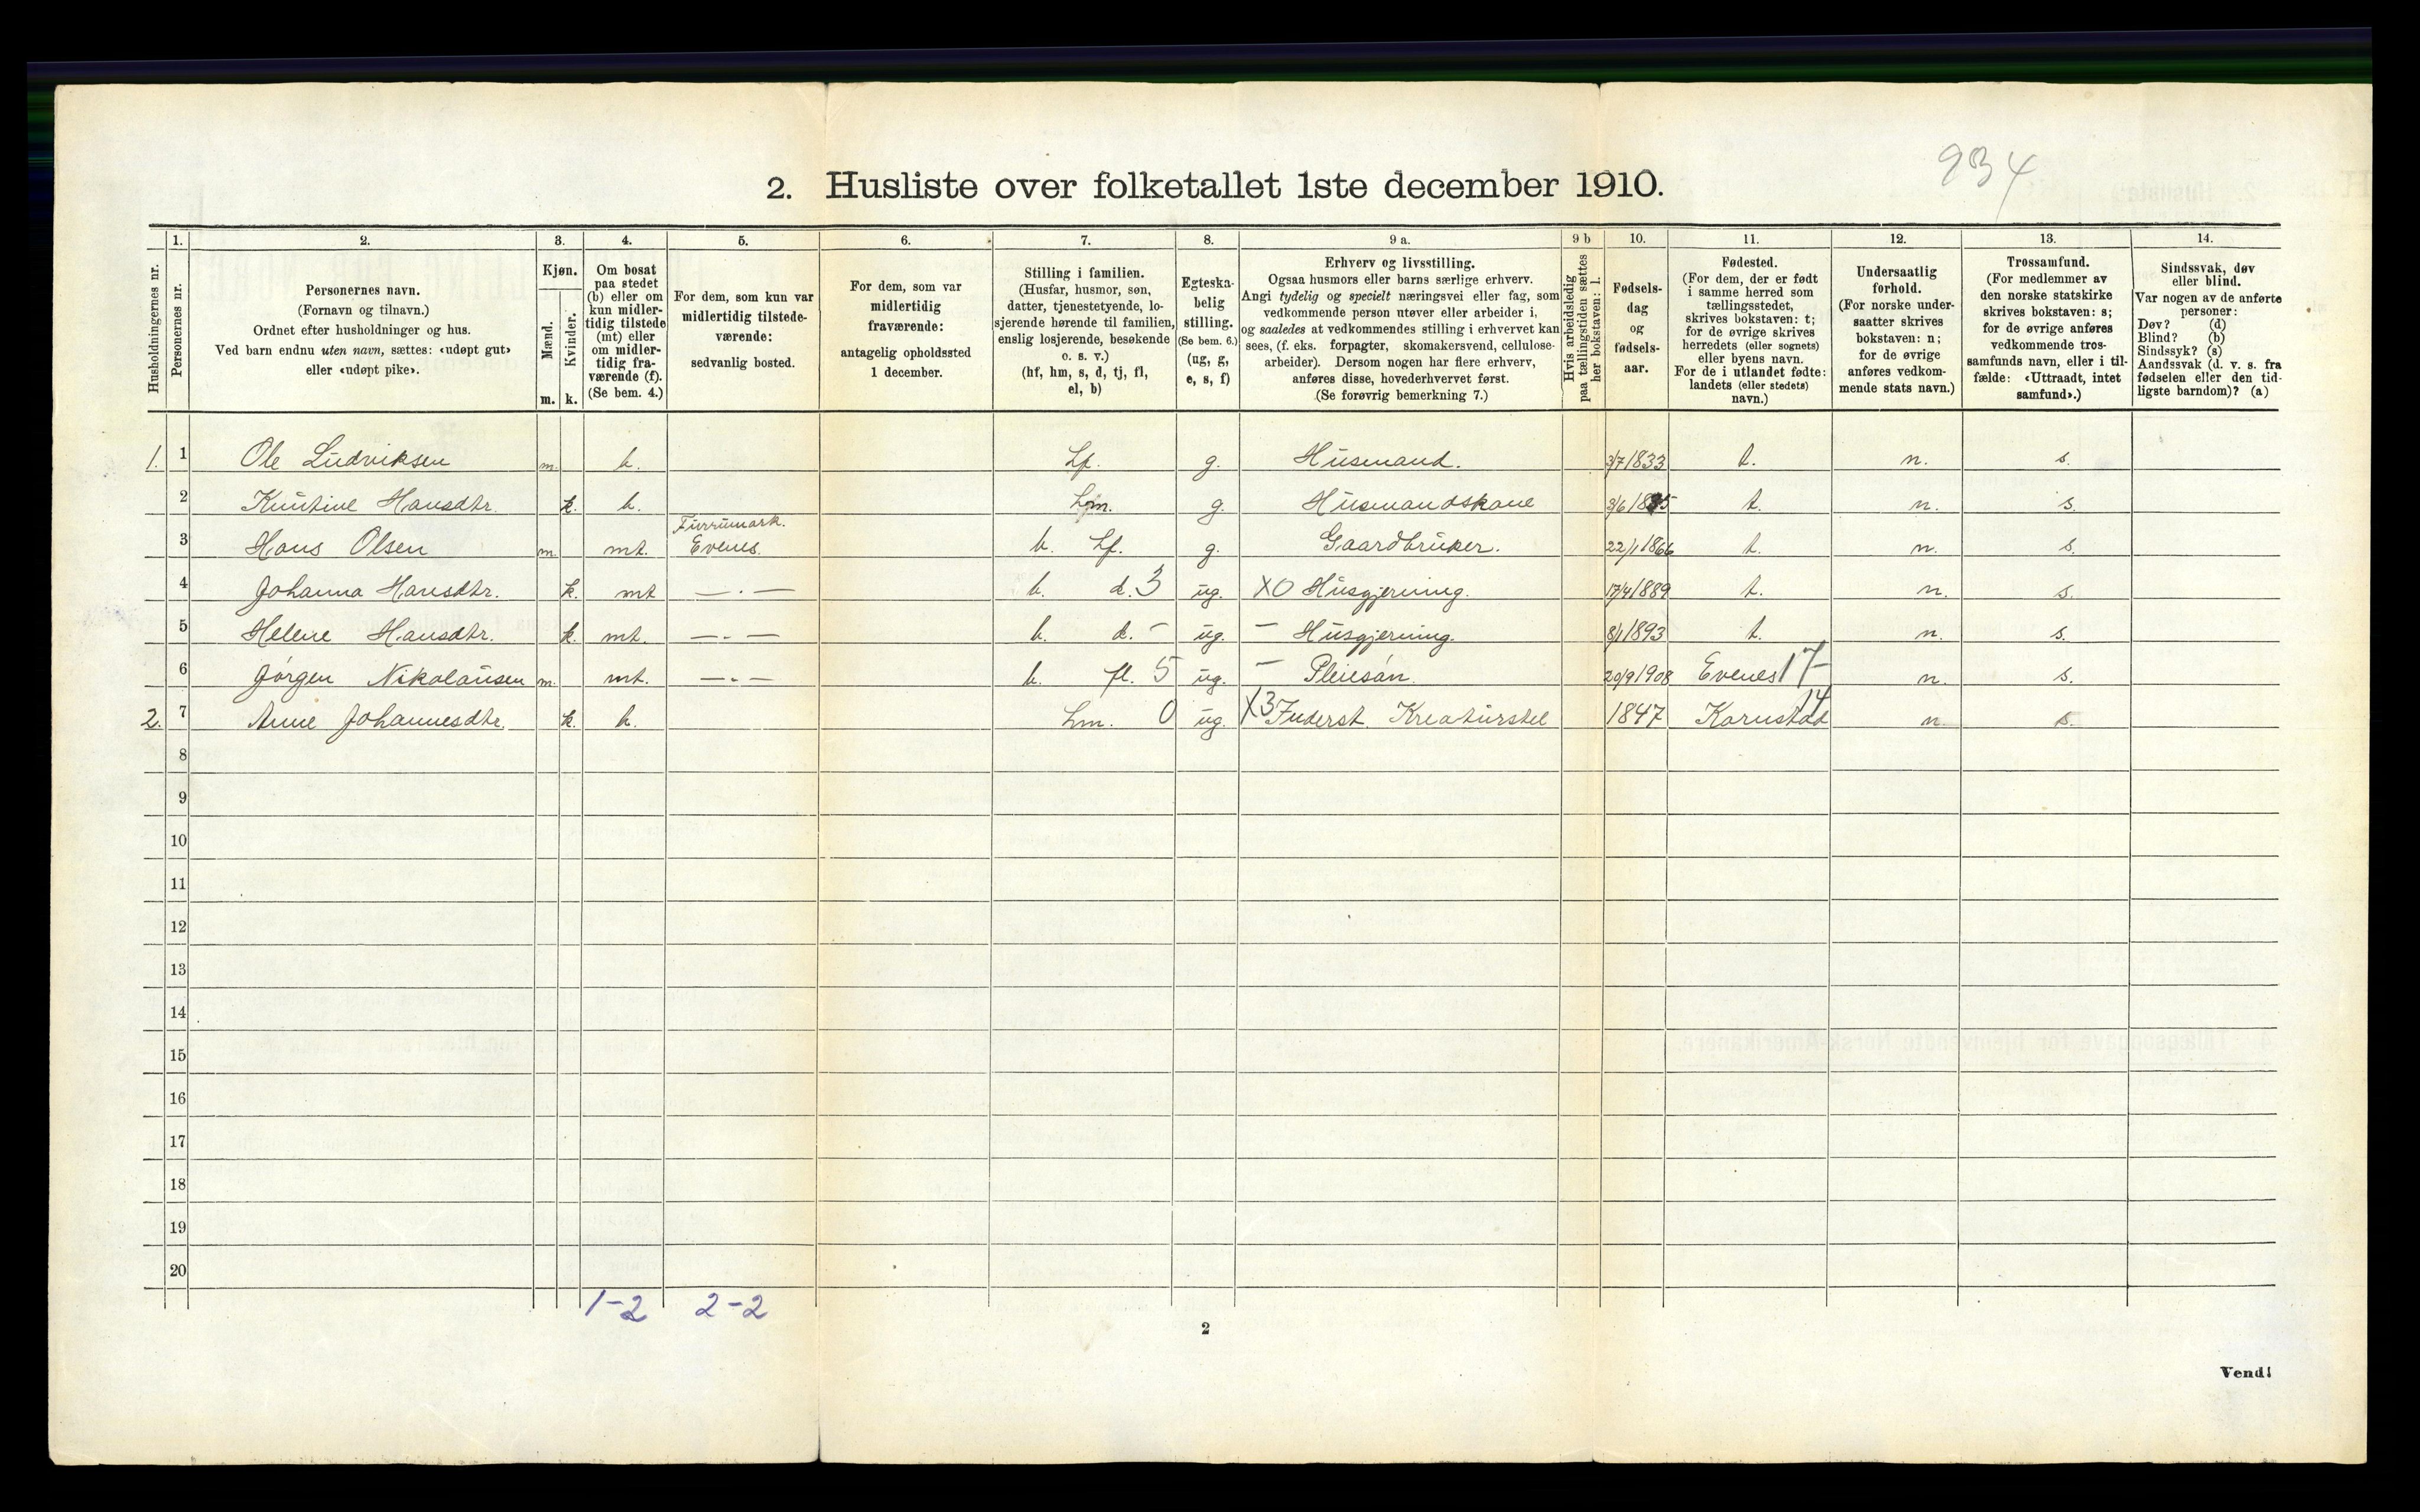 934
2. Husliste over folketallet 1ste december 1910.
Husholdningernes nr.
1.
Personernes nr.
2.
Personernes navn.
(Fornavn og tilnavn.)
Ordnet efter husholdninger og hus.
Ved barn endnu uten navn, sættes: «udøpt gut»
eller «udøpt pike».
3.
Kjøn.
Mænd.
Kvinder.
m. k.
4.
Om bosat
paa stedet
(b) eller om
kun midler-
tidig tilstede
(mt) eller
om midler-
tidig fra-
værende (f).
(Se bem. 4.)
5.
For dem, som kun var
midlertidig tilstede-
værende:
sedvanlig bosted.
6.
For dem, som var
midlertidig
fraværende:
antagelig opholdssted
1 december.
7.
Stilling i familien.
(Husfar, husmor, søn,
datter, tjenestetyende, lo-
sjerende hørende til familien,
enslig losjerende, besøkende
o. s. v.)
(hf, hm, s, d, tj, fl,
el, b)
8.
Egteska-
belig
stilling.
(Se bem. 6.)
(ug, g,
e, s, f)
9 a.
Erhverv og livsstilling.
Ogsaa husmors eller barns særlige erhverv.
Angi tydelig og specielt næringsvei eller fag, som
vedkommende person utøver eller arbeider i,
og saaledes at vedkommendes stilling i erhvervet kan
sees, (f. eks. forpagter, skomakersvend, cellulose-
arbeider). Dersom nogen har flere erhverv,
anføres disse, hovederhvervet først.
(Se forøvrig bemerkning 7.)
9 b
Hvis arbeidsledig
paa tællingstiden sættes
her bokstaven: l.
10.
Fødsels-
dag
og
fødsels-
aar.
11.
Fødested.
(For dem, der er født
i samme herred som
tællingsstedet,
skrives bokstaven: t;
for de øvrige skrives
herredets (eller sognets)
eller byens navn.
For de i utlandet fødte:
landets (eller stedets)
navn.)
12.
Undersaatlig
forhold.
(For norske under-
saatter skrives
bokstaven: n;
for de øvrige
anføres vedkom-
mende stats navn.)
13.
Trossamfund.
(For medlemmer av
den norske statskirke
skrives bokstaven: s;
for de øvrige anføres
vedkommende tros-
samfunds navn, eller i til-
fælde: «Uttraadt, intet
samfund».)
14.
Sindssvak, døv
eller blind.
Var nogen av de anførte
personer:
Døv? (d)
Blind? (b)
Sindssyk? (s)
Aandssvak (d. v. s. fra
fødselen eller den tid-
ligste barndom)? (a)
1. 1 Ole Ludviksen m. b. hf. g. Husmand. 3/7 1833 t. n. s.
2 Kristine Hansdtr. k. b. hm. g. Husmandskone 3/6 t. n. s.
3 Hans Olsen m. mt. Evenes. b. hf. g. Gaardbruker. 22/1 1866 t. n. s.
4 Johanna Hansdtr. k. mt — · — b. d. 3 ug. XO Husgjerning. 17/4 1889 t. n. s.
5 Helene Hansdtr. k. mt. — · — b. d. - ug. - Husgjerning. 8/1 1893 t. n. s.
6 Jørgen Nikolausen m. mt. — · — b. fl. 5 ug. - Pleiesøn. 20/9 1908 Evenes 17 n. s.
2. 7 Anne Johannesdtr. k. b. hm. 0 ug. X3 Inderst. Kreaturstel 1847 14 n. s.
8
9
10
11
12
13
14
15
16
17
18
19
20
1-2 2-2
2
Vend!